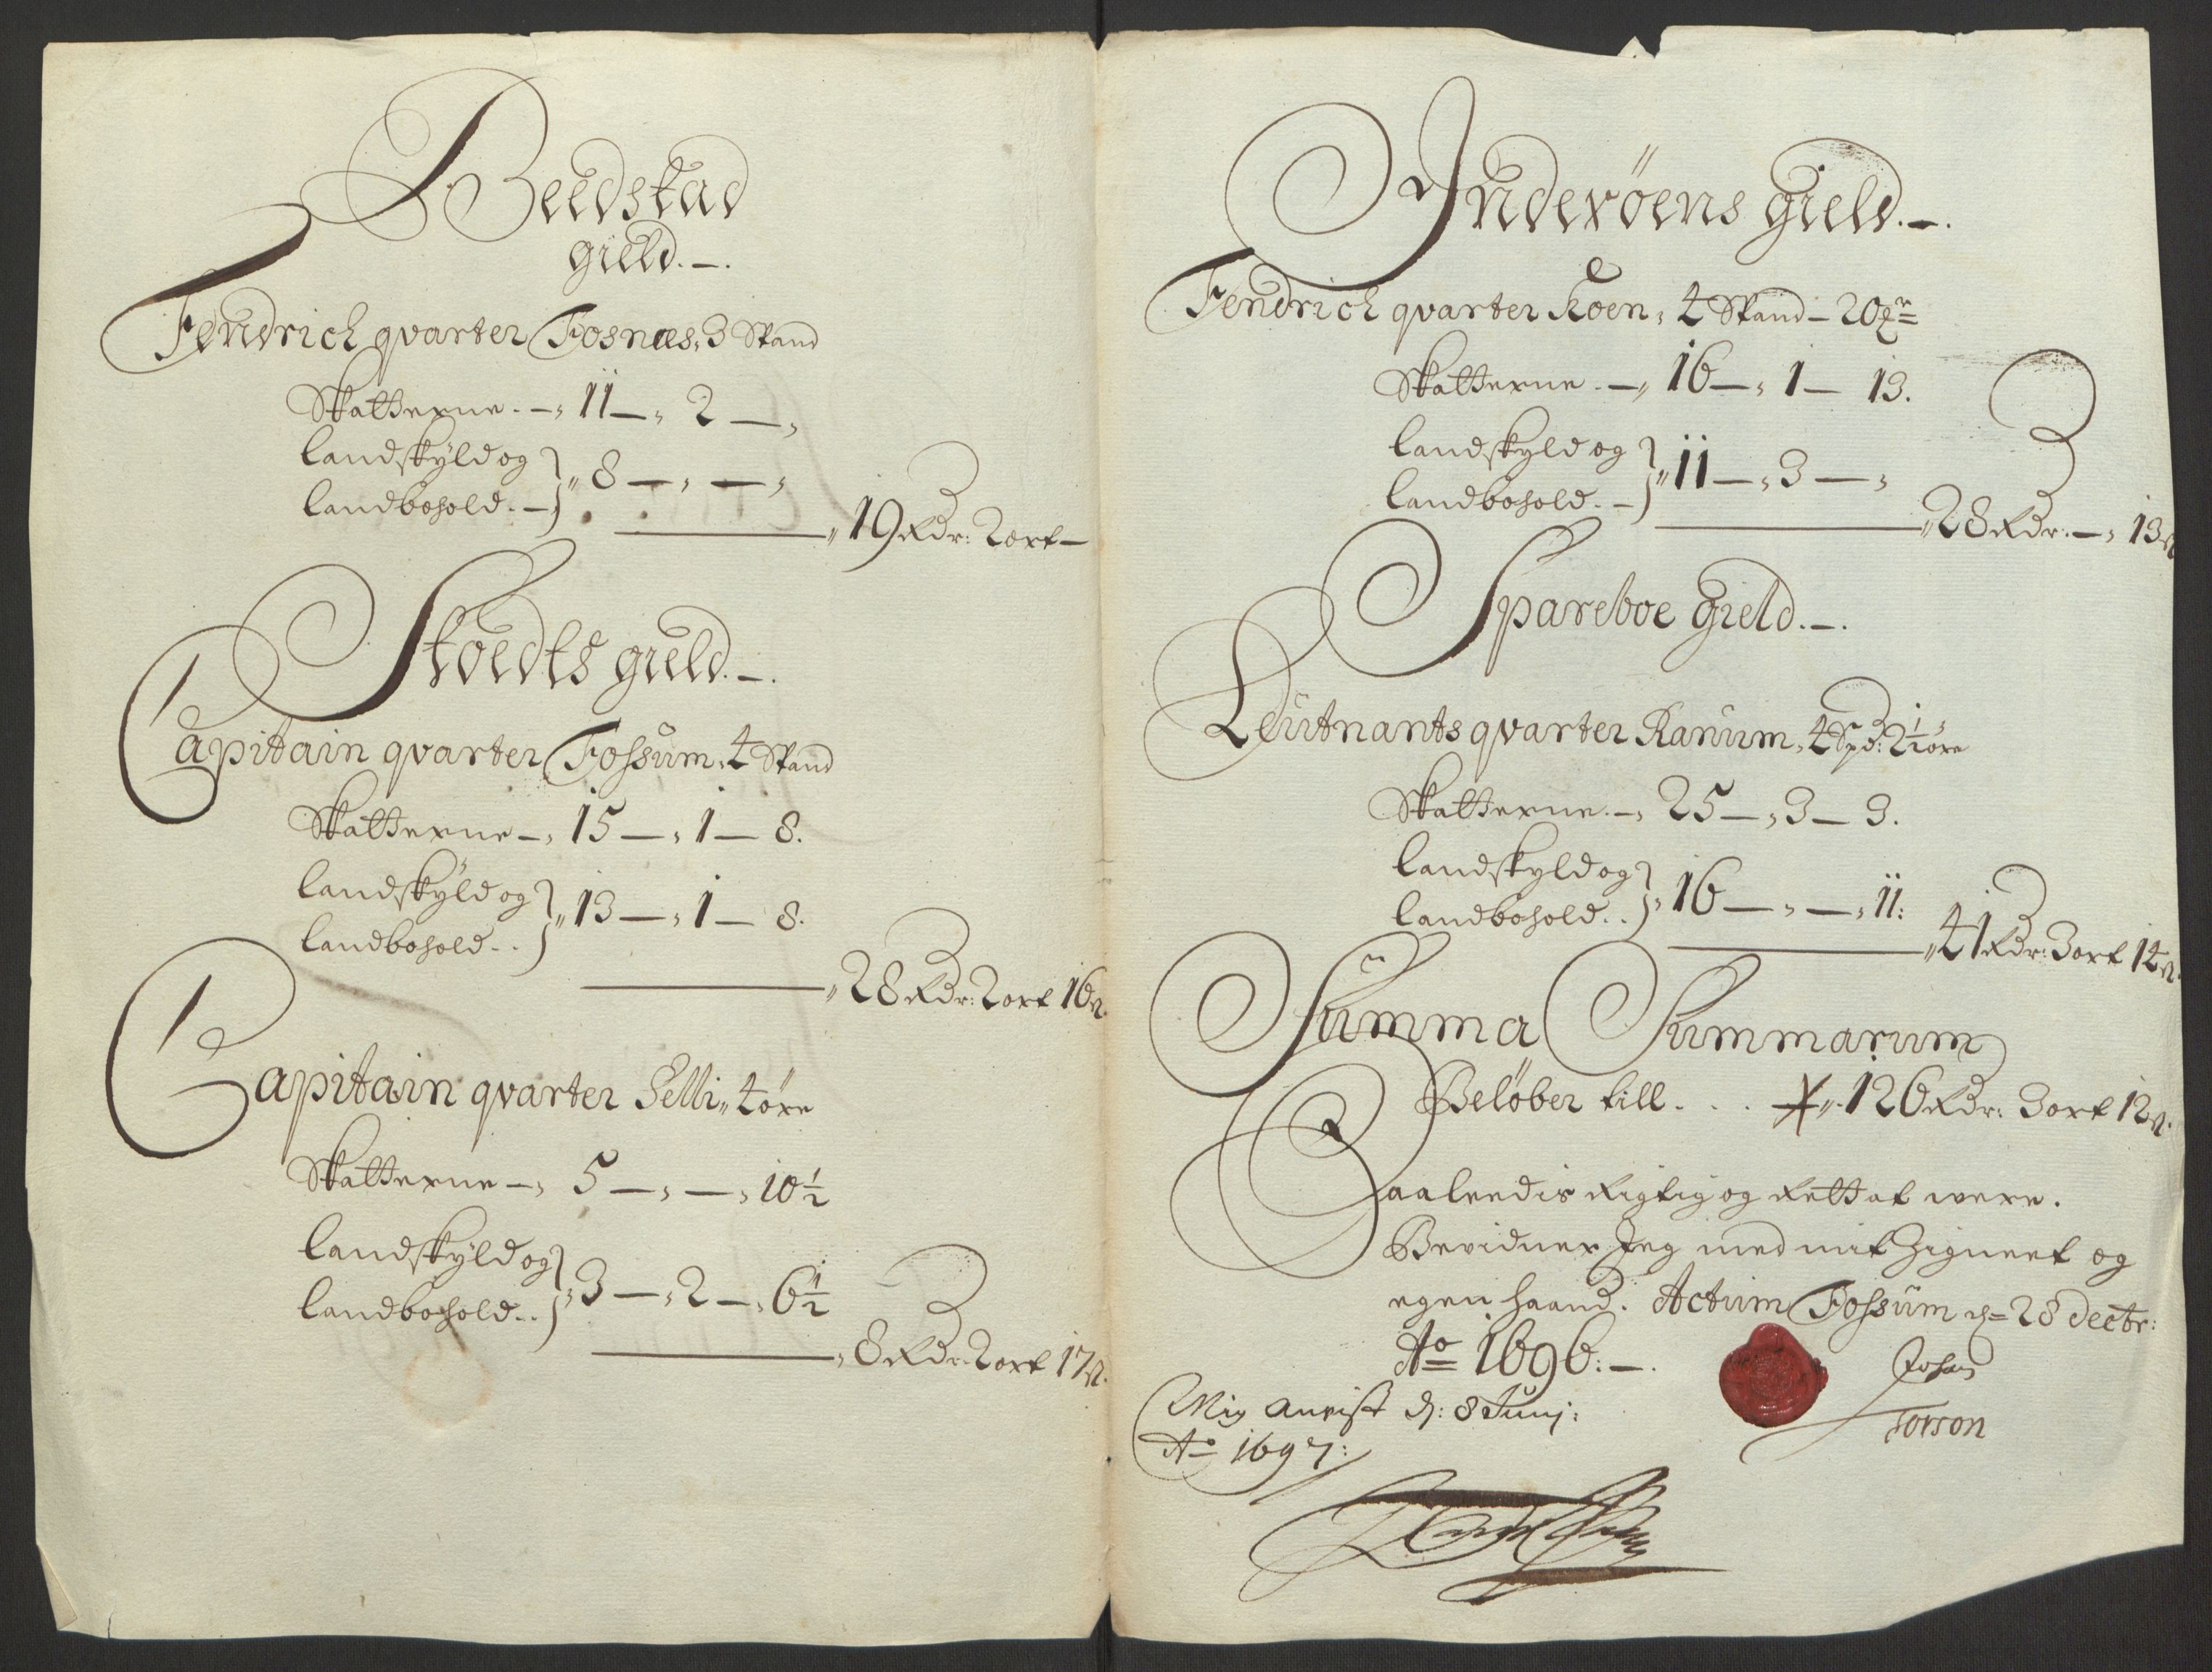 Beedstad
gield.-.
Fendrich qvarter Fosnæs, 3 Spand
Skatterne.-, 11-, 2 -,
Landskyld og
Landbohold.- } „ 8 -, -,
„19 Rdr: 2 ort -
Stoedts gield.-.
Capitain qvarter Fossum, 4 Spand
Skatterne-, 15-, 1- 8.
Landskyld og
Landbohold.. } „ 13-, 1- 8.
„28 Rdr: 2 ort 16 s.
Capitain qvarter Selli, 4 öre
Skatterne-, 5-, -, 10½
Landskyld og
Landbohold.. } , 3-, 2-, 6½
, 8 Rdr: 2 ort 17 s.
Inderöens gield.-.
Fendrich qvarter Roen, 4 Spand - 20
Skatterne.-„ 16-, 1- 13.
Landskyld og
Landbohold.- } „ 11-, 3-,
„28 Rdr.-, 13 s
Spareboe gield.-.
Leutnants qvarter Ranum, 4 Spd: 2½ öre
Skatterne.-, 25-, 3- 3.
Landskyld og
Landbohold.. } , 16-, -, 11:
„41 Rdr: 3 ort 14 s.
Summa Summarum
Belöber till. . . „ 126 Rdr: 3 ort 12 s.
Saaleedis Rigtig og Rett at were.
Bevidner Jeg med mit Zigneet og
egen haand. Actum Fossum d= 28 decbr:
Ao 1696.-.
Johan
Torson
Mig anvist d: 8 Junj:
Ao 1697: